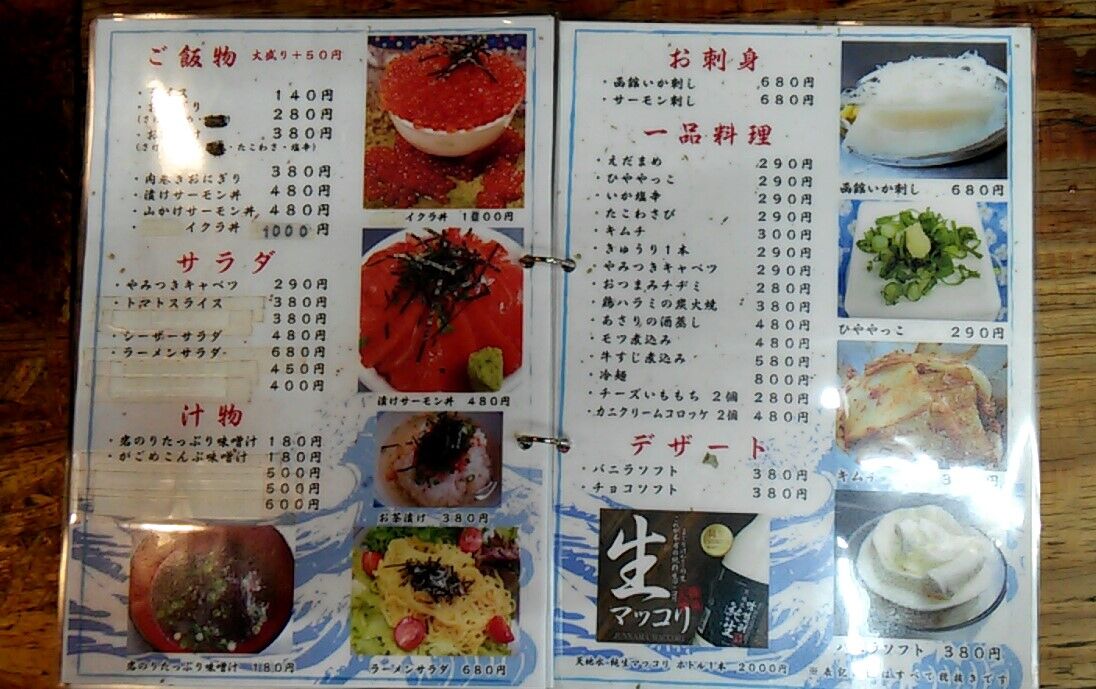 ご飯物 大盛り+50円
140円
280円
380円
・たこわさ・塩辛)
・肉巻きおにぎり 380円
・漬けサーモン丼 480円
・山かけサーモン丼 480円
・イクラ丼 1000円
イクラ丼 1000円
サラダ
・やみつきキャベツ 290円
・トマトスライス 380円
380円
・シーザーサラダ 480円
・ラーメンサラダ 680円
450円
400円
漬けサーモン丼 480円
汁物
・岩のりたっぷり味噌汁 180円
・がごめこんぶ味噌汁 180円
500円
500円
600円
お茶漬け 380円
岩のりたっぷり味噌汁 180円
ラーメンサラダ 680円
お刺身
・函館いか刺し 680円
・サーモン刺し 680円
函館いか刺し 680円
一品料理
・えだまめ 290円
・ひややっこ 290円
・いか塩辛 290円
・たこわさび 290円
・キムチ 300円
・きゅうり1本 290円
・やみつきキャベツ 290円
・おつまみチヂミ 280円
・鶏ハラミの炭火焼 380円
・あさりの酒蒸し 480円
・モツ煮込み 480円
・牛すじ煮込み 580円
・冷麺 800円
・チーズいももち 2個 280円
・カニクリームコロッケ 2個 480円
ひややっこ 290円
デザート
・バニラソフト 380円
・チョコソフト 380円
生
マッコリ
天地水・純生マッコリ ボトル1本 2000円
ニラソフト 380円
はすべて税抜きです